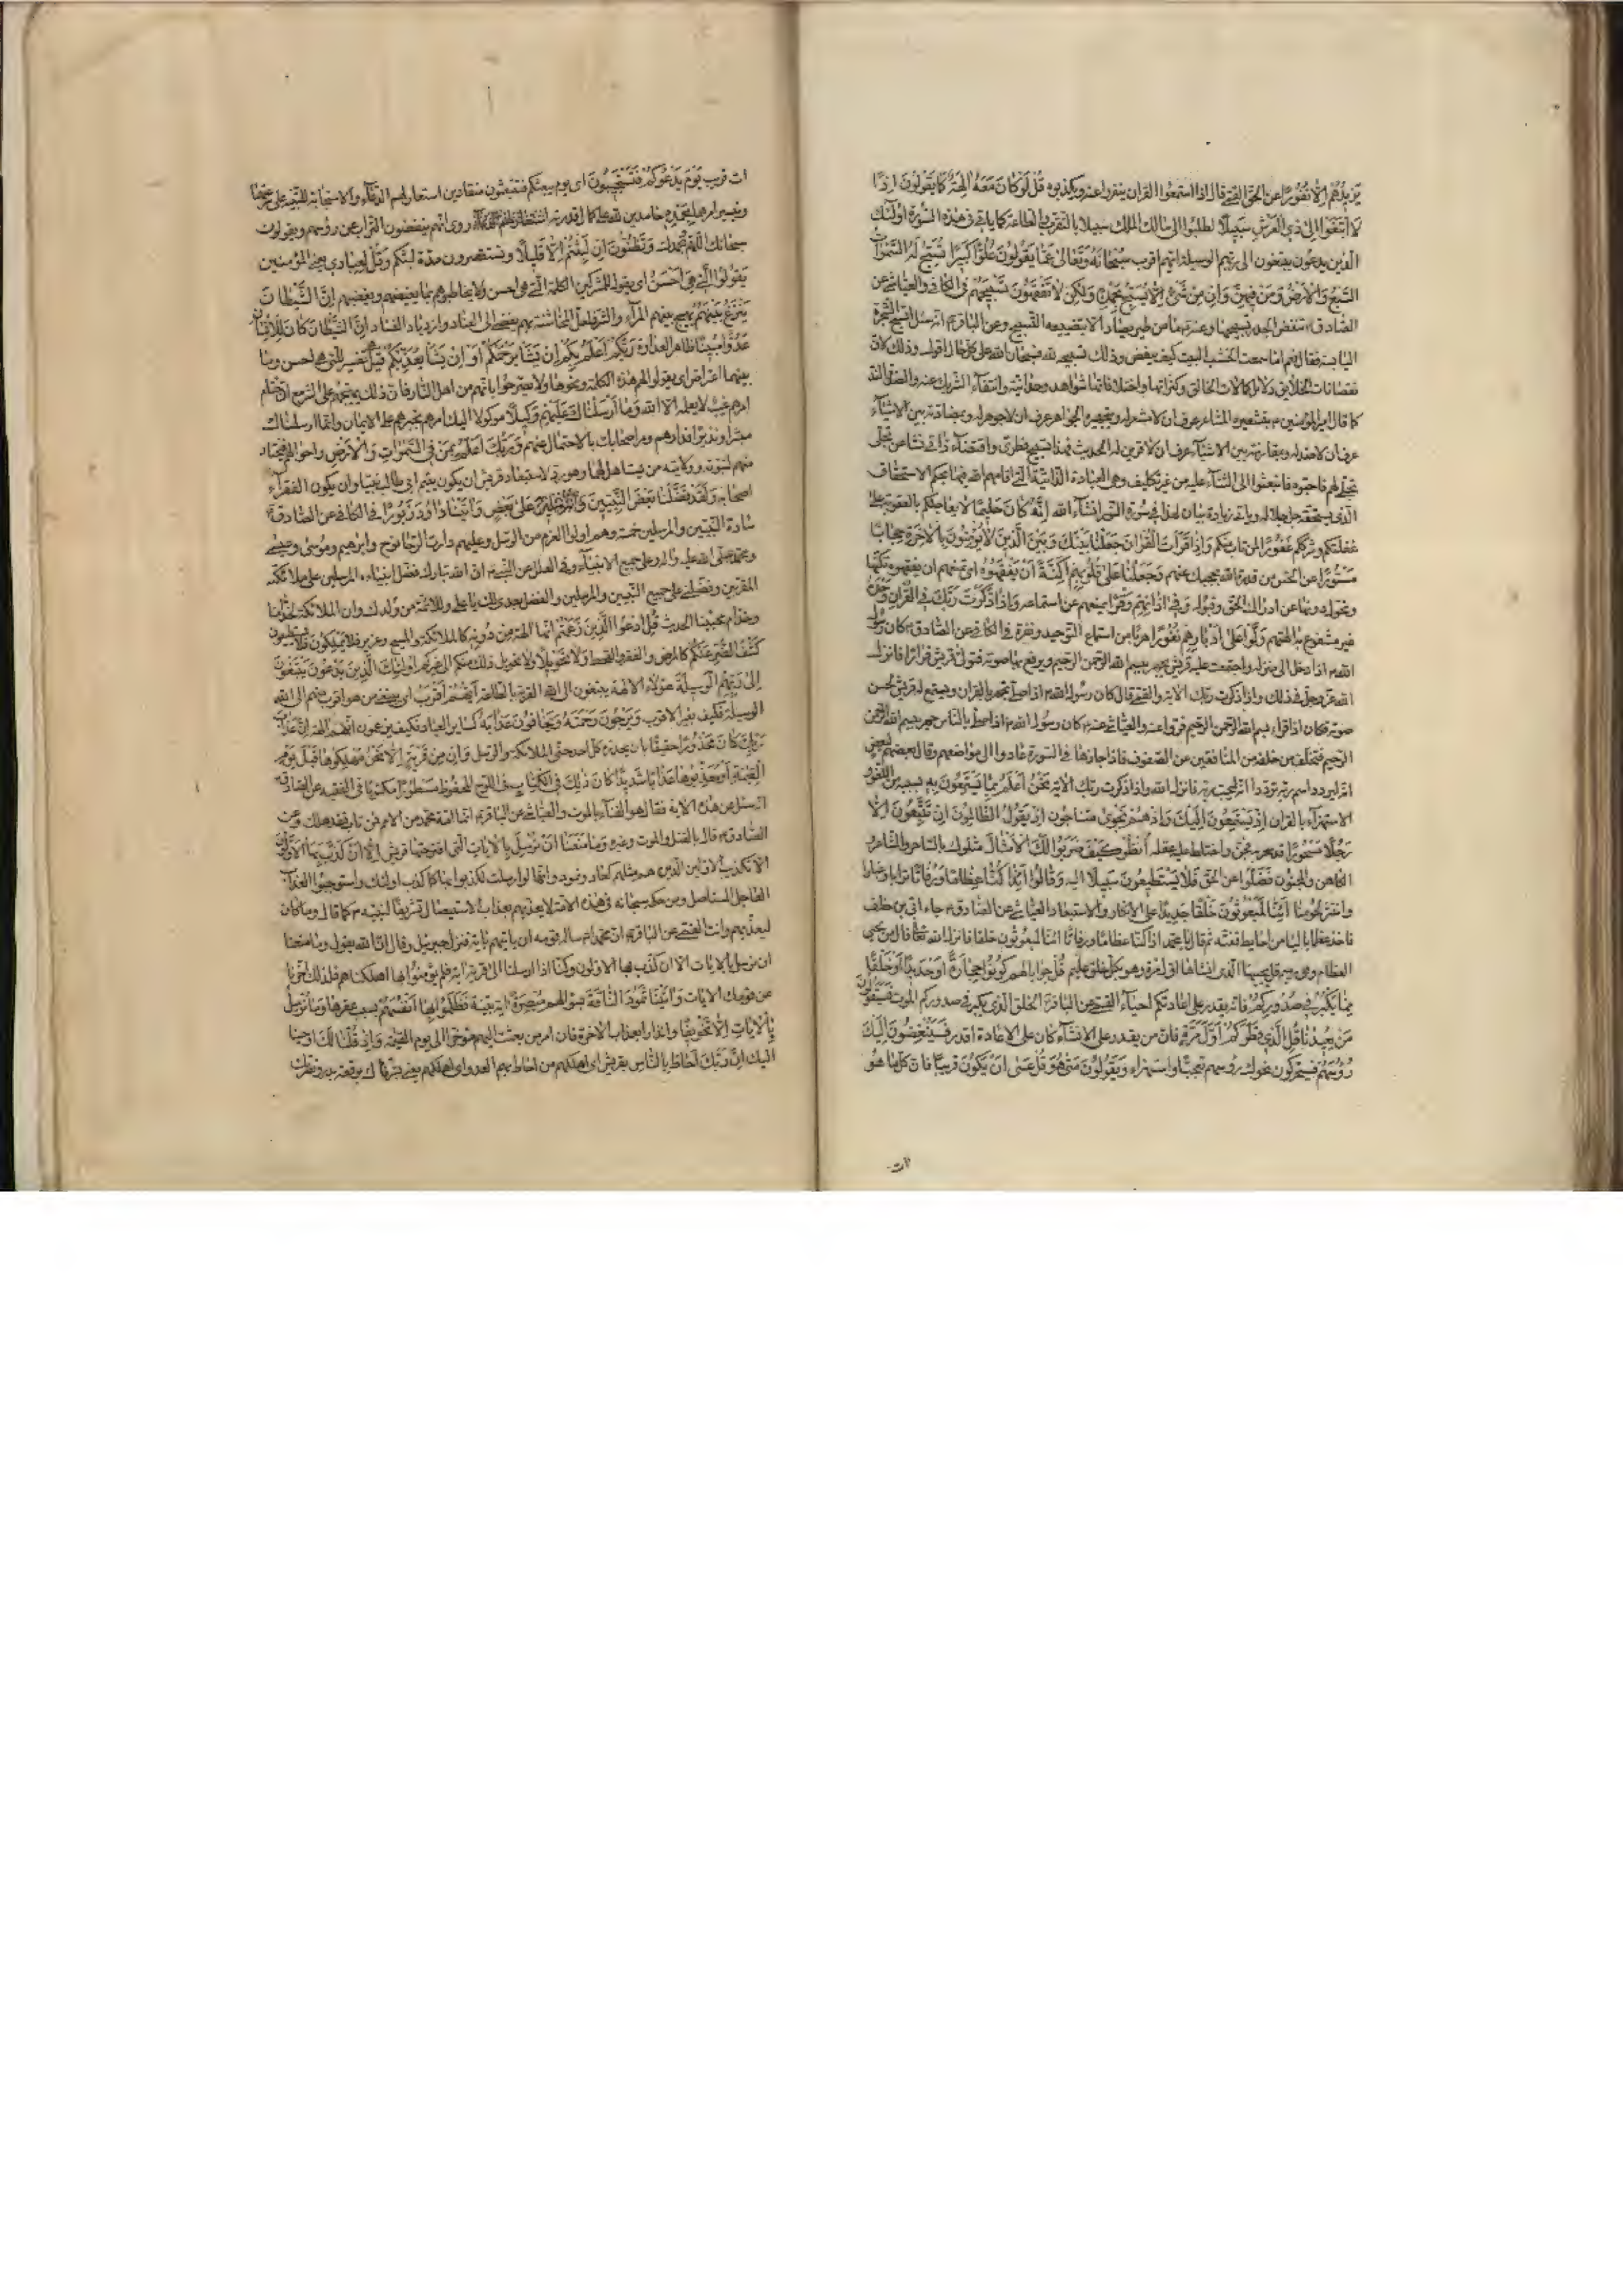 يَزيدُهُم اِلّا نُفُورًا عن الحق القمي قال اذا استمعوا القران ينفروا عنه ويكذبوه قُل لَو كانَ مَعَهُ الِهَةٌ كَما يَقُولُونَ اِذًا
لَابْتَغَوا اِلى ذِي العَرْشِ سَبيلًا لطلبوا الى مالك الملك سبيلا بالتقرب والطاعة كما ياتي في هذه السورة اولئك
الذين يدعون يبتغون الى ربهم الوسيلة ايهم اقرب سُبْحانَهُ وَتَعالى عَمّا يَقُولُونَ عُلُوًّا كَبيرًا تُسَبِّحُ لَهُ السَّمواتُ
السَّبْعُ وَالاَرْضُ وَمَنْ فيهِنَّ وَاِن مِن شَيْءٍ اِلّا يُسَبِّحُ بِحَمْدِهِ وَلكِن لا تَفْقَهُونَ تَسْبيحَهُم في الكافي والعياشي عن
الصادق تنقض الجدر تسبيحها وعن الباقر انه سئل اتسبح الشجرة
اليابسة فقال نعم اما سمعت الخشب البيت كيف ينقض وذلك تسبيحه لله فسبحان الله على كل حال اقول وذلك لان
نقصانات الخلائق دلائل كمالات الخالق وكثراتها واختلافاتها شواهد وحدانيته وانتفاء الشريك عنه والضد والند
كما قال امير المؤمنين بتشعيره المشاعر عرف ان لا مشعر له وبتجهيره الجواهر عرف ان لا جوهر له وبمضادته بين الاشياء
عرف ان لا ضد له وبمقارنته بين الاشياء عرف ان لا قرين له الحديث فهذا تسبيح فطري واقتضاء ذاتي نشأ عن تجلّي
تجلّى لهم فاحبوه فانبعثوا الى الثناء عليه من غير تكليف وهي العبادة الذاتية التي اقامهم الله فيها بحكم الاستحقاق
الذي يستحقه جل جلاله وياتي زيادة بيان لهذا في سورة النور انشاء الله اِنَّهُ كانَ حَليمًا لا يعاجلكم بالعقوبة على
غفلتكم وشرككم غَفُورًا لمن تاب منكم وَاِذا قَرَأتَ القُرانَ جَعَلْنا بَيْنَكَ وَبَيْنَ الَّذينَ لا يُؤْمِنُونَ بِالاخِرَةِ حِجابًا
مَسْتُورًا عن الحس من قدرة الله يحجبك عنهم وَجَعَلْنا عَلى قُلُوبِهِم اَكِنَّةً اَن يَفْقَهُوهُ
وتحول دونها عن ادراك الحق وقبوله وَفي اذانِهِم وَقْرًا يمنعهم عن استماعه وَاِذا ذَكَرْتَ رَبَّكَ فِي القُرانِ وَحْدَهُ
غير مشفوع به الهتهم وَلَّوْا عَلى اَدْبارِهِم نُفُورًا هربا من استماع التوحيد ونفرة في الكافي عن الصادق كان رسول
الله اذا دخل الى منزله واجتمعت عليه قريش يجهر ببسم الله الرحمن الرحيم ويرفع بها صوته فتولى قريش فرارا فانزل
الله عز وجل في ذلك واذا ذكرت ربك الاية والقمي قال كان رسول الله اذا صلى تهجد بالقران ويستمع له قريش لحسن
صوته فكان اذا قراء بسم الله الرحمن الرحيم فروا عنه والعياشي عنه كان رسول الله اذا صلى بالناس جهر ببسم الله الرحمن
الرحيم فتخلف من خلفه من المنافقين عن الصفوف فاذا جازها في السورة عادوا الى مواضعهم وقال بعضهم لبعض
انه ليردد اسم ربه تردادا انه ليحب ربه فانزل الله واذا ذكرت ربك الاية نَحْنُ اَعْلَمُ بِما يَسْتَمِعُونَ بِهِ بسببه من اللغو و
الاستهزاء بالقران اِذ يَسْتَمِعُونَ اِلَيْكَ وَاِذ هُم نَجْوى متناجون اِذ يَقُولُ الظّالِمُونَ اِن تَتَّبِعُونَ اِلّا
رَجُلًا مَسْحُورًا قد سحر به فجنّ واختلط عليه عقله اُنْظُر كَيْفَ ضَرَبُوا لَكَ الاَمْثالَ مثلوك بالساحر والشاعر و
الكاهن والمجنون فَضَلُّوا عن الحق فَلا يَسْتَطيعُونَ سَبيلًا اليه وَقالُوا اَئِذا كُنّا عِظامًا وَرُفاتًا ترابا وغبارا
وانتثر لحومنا اَئِنّا لَمَبْعُوثُونَ خَلْقًا جَديدًا على الانكار والاستبعاد العياشي عن الصادق جاء ابي بن خلف
فاخذ عظما باليا من حايط ففته ثم قال يا محمد اذا كنا عظاما ورفاتا ائنا لمبعوثون خلقا فانزل الله تعالى قال من يحيي
العظام وهي رميم قل يحييها الذي انشأها اول مرة وهو بكل خلق عليم قُل جوابا لهم كُونُوا حِجارَةً اَو حَديدًا اَو خَلْقًا
مِمّا يَكْبُرُ في صُدُورِكُم فانه يقدر على اعادتكم احياء القمي عن الباقر الخلق الذي يكبر في صدوركم الموت فَسَيَقُولُونَ
مَن يُعيدُنا قُلِ الَّذي فَطَرَكُم اَوَّلَ مَرَّةٍ فان من يقدر على الانشاء كان على الاعادة اقدر فَسَيُنْغِضُونَ اِلَيْكَ
رُؤُسَهُم فسيحركون نحوك رؤسهم تعجبا واستهزاء وَيَقُولُونَ مَتى هُوَ قُل عَسى اَن يَكُونَ قَريبًا فان كل ما هو
ات
ات قريب يَوْمَ يَدْعُوكُم فَتَسْتَجيبُونَ اي يوم يبعثكم فتنبعثون منقادين استعار لهم الدعاء والاستجابة للتنبيه على سرعتها
وتيسر امرهما بِحَمْدِهِ حامدين لله على كمال قدرته روي انهم ينفضون التراب عن رؤسهم ويقولون
سبحانك اللهم وبحمدك وَتَظُنُّونَ اِن لَبِثْتُم اِلّا قَليلًا وتستقصرون مدة لبثكم وَقُل لِعِبادي يعني المؤمنين
يَقُولُوا الَّتي هِيَ اَحْسَنُ اي يقولوا للمشركين الكلمة التي هي احسن ولا يخاطبوهم بما يغيظهم ويغضبهم اِنَّ الشَّيْطانَ
يَنْزَغُ بَيْنَهُم يهيج بينهم المراء والشر فلعل المخاشنة بهم يفضي الى العناد وازدياد الفساد اِنَّ الشَّيْطانَ كانَ لِلاِنْسانِ
عَدُوًّا مُبينًا ظاهر العداوة رَبُّكُم اَعْلَمُ بِكُم اِن يَشَأ يَرْحَمْكُم اَو اِن يَشَأ يُعَذِّبْكُم قيل تفسير للتي هي احسن وما
بينهما اعتراض اي يقولوا لهم هذه الكلمة ونحوها ولا يصرحوا بانهم من اهل النار فان ذلك يهيجهم على الشر مع ان ختام
امرهم غيب لا يعلمه الا الله وَما اَرْسَلْناكَ عَلَيْهِم وَكيلًا موكولا اليك امرهم تجبرهم على الايمان وانما ارسلناك
مبشرا ونذيرا فدارهم ومر اصحابك بالاحتمال عنهم وَرَبُّكَ اَعْلَمُ بِمَن فِي السَّمواتِ وَالاَرْضِ وباحوالهم فيختار
منهم لنبوته وولايته من يستاهل لهما وهو رد لاستبعاد قريش ان يكون يتيم ابي طالب نبيا وان يكون الفقراء
اصحابه وَلَقَد فَضَّلْنا بَعْضَ النَّبِيّينَ عَلى بَعْضٍ وَاتَيْنا داوُدَ زَبُورًا في الكافي عن الصادق
سادة النبيين والمرسلين خمسة وهم اولوا العزم من الرسل وعليهم دارت الرحا نوح وابرهيم وموسى وعيسى
ومحمد صلى الله عليه واله وعلى جميع الانبياء وفي العلل عن النبي ان الله تبارك فضل انبياءه المرسلين على ملائكته
المقربين وفضلني على جميع النبيين والمرسلين والفضل بعدي لك يا علي وللائمة من ولدك وان الملائكة لخدامنا
وخدام محبينا الحديث قُلِ ادْعُوا الَّذينَ زَعَمْتُم انها الهة مِن دُونِهِ كالملائكة والمسيح وعزير فَلا يَمْلِكُونَ فلا يستطيعون
كَشْفَ الضُّرِّ عَنْكُم كالمرض والفقر والقحط وَلا تَحْويلًا ولا تحويل ذلك منكم الى غيركم اُولئِكَ الَّذينَ يَدْعُونَ يَبْتَغُونَ
اِلى رَبِّهِمُ الوَسيلَةَ هؤلاء الالهة يبتغون الى الله القربة بالطاعة اَيُّهُم اَقْرَبُ اي يبتغي من هو اقرب منهم الى الله
الوسيلة فكيف بغير الاقرب وَيَرْجُونَ رَحْمَتَهُ وَيَخافُونَ عَذابَهُ كساير العباد فكيف يزعمون انهم الهة اِنَّ عَذابَ
رَبِّكَ كانَ مَحْذُورًا حقيقا بان يحذره كل احد حتى الملائكة والرسل وَاِن مِن قَرْيَةٍ اِلّا نَحْنُ مُهْلِكُوها قَبْلَ يَوْمِ
القِيمَةِ اَو مُعَذِّبُوها عَذابًا شَديدًا كانَ ذلِكَ فِي الكِتابِ في اللوح المحفوظ مَسْطُورًا مكتوبا في الفقيه عن الصادق
انه سئل عن هذه الاية فقال هو الفناء بالموت والعياشي عن الباقر انما امة محمد من الامم فمن مات فقد هلك وعن
الصادق قال بالقتل والموت وغيره وَما مَنَعَنا اَن نُرْسِلَ بِالاياتِ التي اقترحتها قريش اِلّا اَن كَذَّبَ بِهَا الاَوَّلُونَ
الا تكذيب الاولين الذين هم مثلهم كعاد وثمود وانها لو ارسلت لكذبوا بها كما كذب اولئك واستوجبوا العذاب
العاجل المستاصل ومن حكمه سبحانه في هذه الامة ان لا يعذبهم بعذاب الاستيصال تشريفا لنبيه كما قال وما كان الله
ليعذبهم وانت فيهم القمي عن الباقر ان محمدا سأله قومه ان ياتيهم باية فنزل جبرئيل وقال ان الله يقول وما منعنا
ان نرسل بالايات الا ان كذب بها الاولون وكنا اذا ارسلنا الى قرية اية فلم يؤمنوا بها اهلكناهم فلذلك اخرنا
عن قومك الايات وَاتَيْنا ثَمُودَ النّاقَةَ بسؤالهم مُبْصِرَةً اية بينة فَظَلَمُوا بِها انفسهم بسبب عقرها وَما نُرْسِلُ
بِالاياتِ اِلّا تَخْويفًا وانذارا بعذاب الاخرة فان امر من بعثت اليهم مؤخر الى يوم القيمة وَاِذ قُلْنا لَكَ اوحينا
اليك اِنَّ رَبَّكَ اَحاطَ بِالنّاسِ بقريش اي اهلكهم من احاط بهم العدو اي اهلكهم يعني بشرناك بوقعة بدر ونصرك